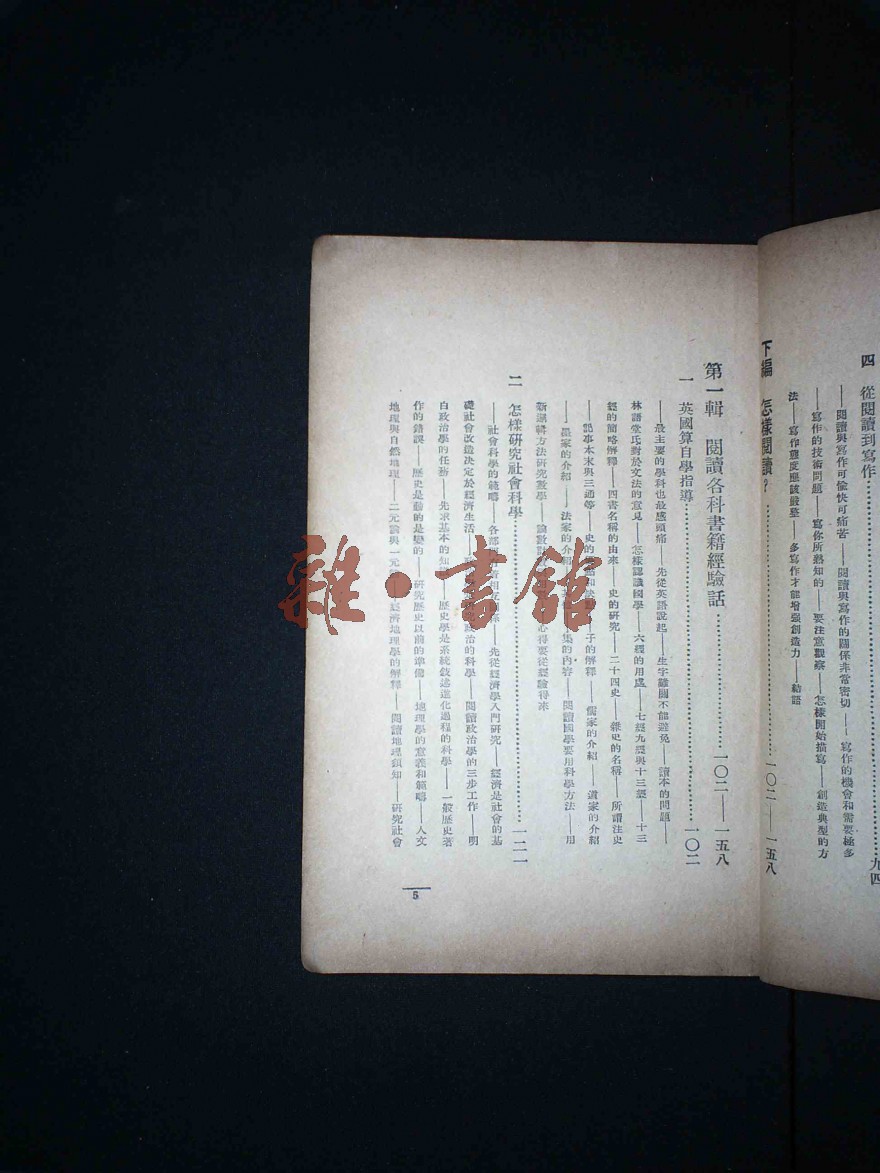 四 從閱讀到寫作…………九四
——閱讀與寫作可愉快可痛苦——閱讀與寫作的關係非常密切——寫作的機會和需要極多
——寫作的技術問題——寫你所熟知的——要注意觀察——怎樣開始描寫——創造典型的方
法——寫作態度應該嚴整——多寫作才能增强創造力——結語
下編 怎樣閱讀?…………一〇二——一五八
第一輯 閱讀各科書籍經驗話…………一〇二——一五八
一 英國算自學指導…………一〇二
——最主要的學科也最感頭痛——先從英語說起——生字難關不能避免——讀本的問題——
林語堂氏對於文法的意見——怎樣認識國學——六經的用處——七經九經與十三經——十三
經的簡略解釋——四書名稱的由來——史的研究——二十四史——雜史的名稱——所謂注史
——記事本末與三通等——史的 子的解釋——儒家的介紹——道家的介紹
——墨家的介紹——法家的介紹 集的內容——閱讀國學要用科學方法——用
新邏輯方法研究數學——論數 心得要從經驗得來
二 怎樣研究社會科學…………一二一
——社會科學的範疇——各部 相互關係——先從經濟學入門研究——經濟是社會的基
礎社會改造決定於經濟生活——政 政治的科學——閱讀政治學的三步工作——明
白政治學的任務——先求基本的知識——歷史學是系統敍述進化過程的科學——一般歷史著
作的錯誤——歷史是動的是變的——研究歷史以前的準備——地理學的意義和範疇——人文
地理與自然地理——二元論與一元 ——經濟地理學的解釋——閱讀地理須知——研究社會
5
雜·書館